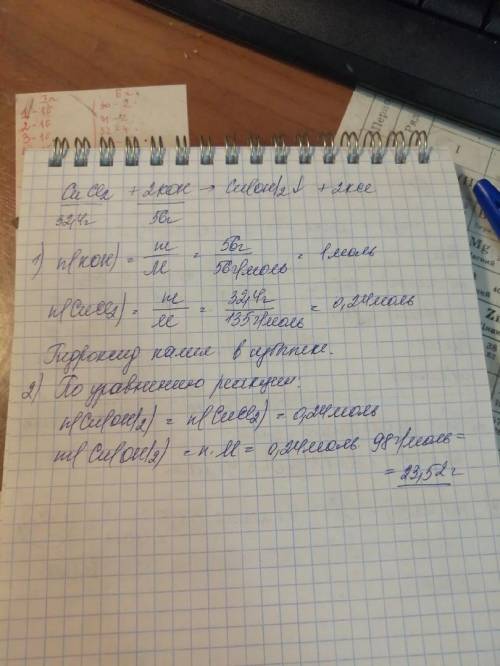 CuCl2 + 2KOH → Cu(OH)2↓ + 2KCl
32,4г 56г
1) n(KOH) = m/M = 56г/56г/моль = 1 моль
n(CuCl2) = m/M = 32,4г/135г/моль = 0,24моль
Гидроксид калия в избытке.
2) По уравнению реакции:
n(Cu(OH)2) = n(CuCl2) = 0,24моль
m(Cu(OH)2) = n·M = 0,24моль · 98г/моль =
= 23,52г
Mg
Zn